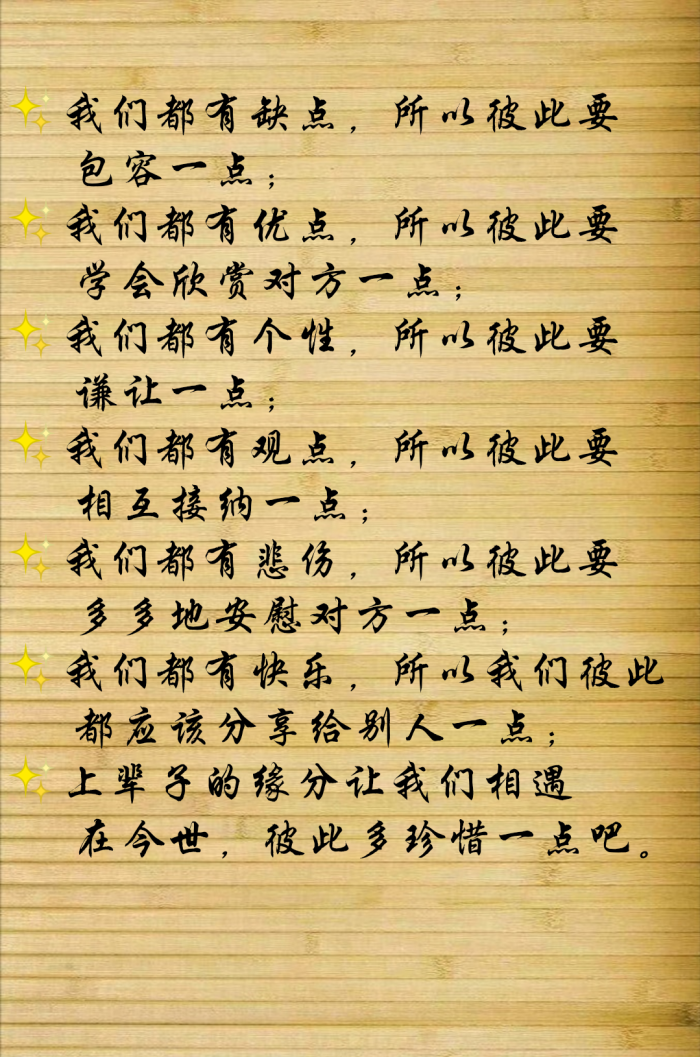 我们都有缺点，所以彼此要
包容一点；
我们都有优点，所以彼此要
学会欣赏对方一点；
我们都有个性，所以彼此要
谦让一点；
我们都有观点，所以彼此要
相互接纳一点；
我们都有悲伤，所以彼此要
多多地安慰对方一点；
我们都有快乐，所以我们彼此
都应该分享给别人一点；
上辈子的缘分让我们相遇
在今世，彼此多珍惜一点吧。